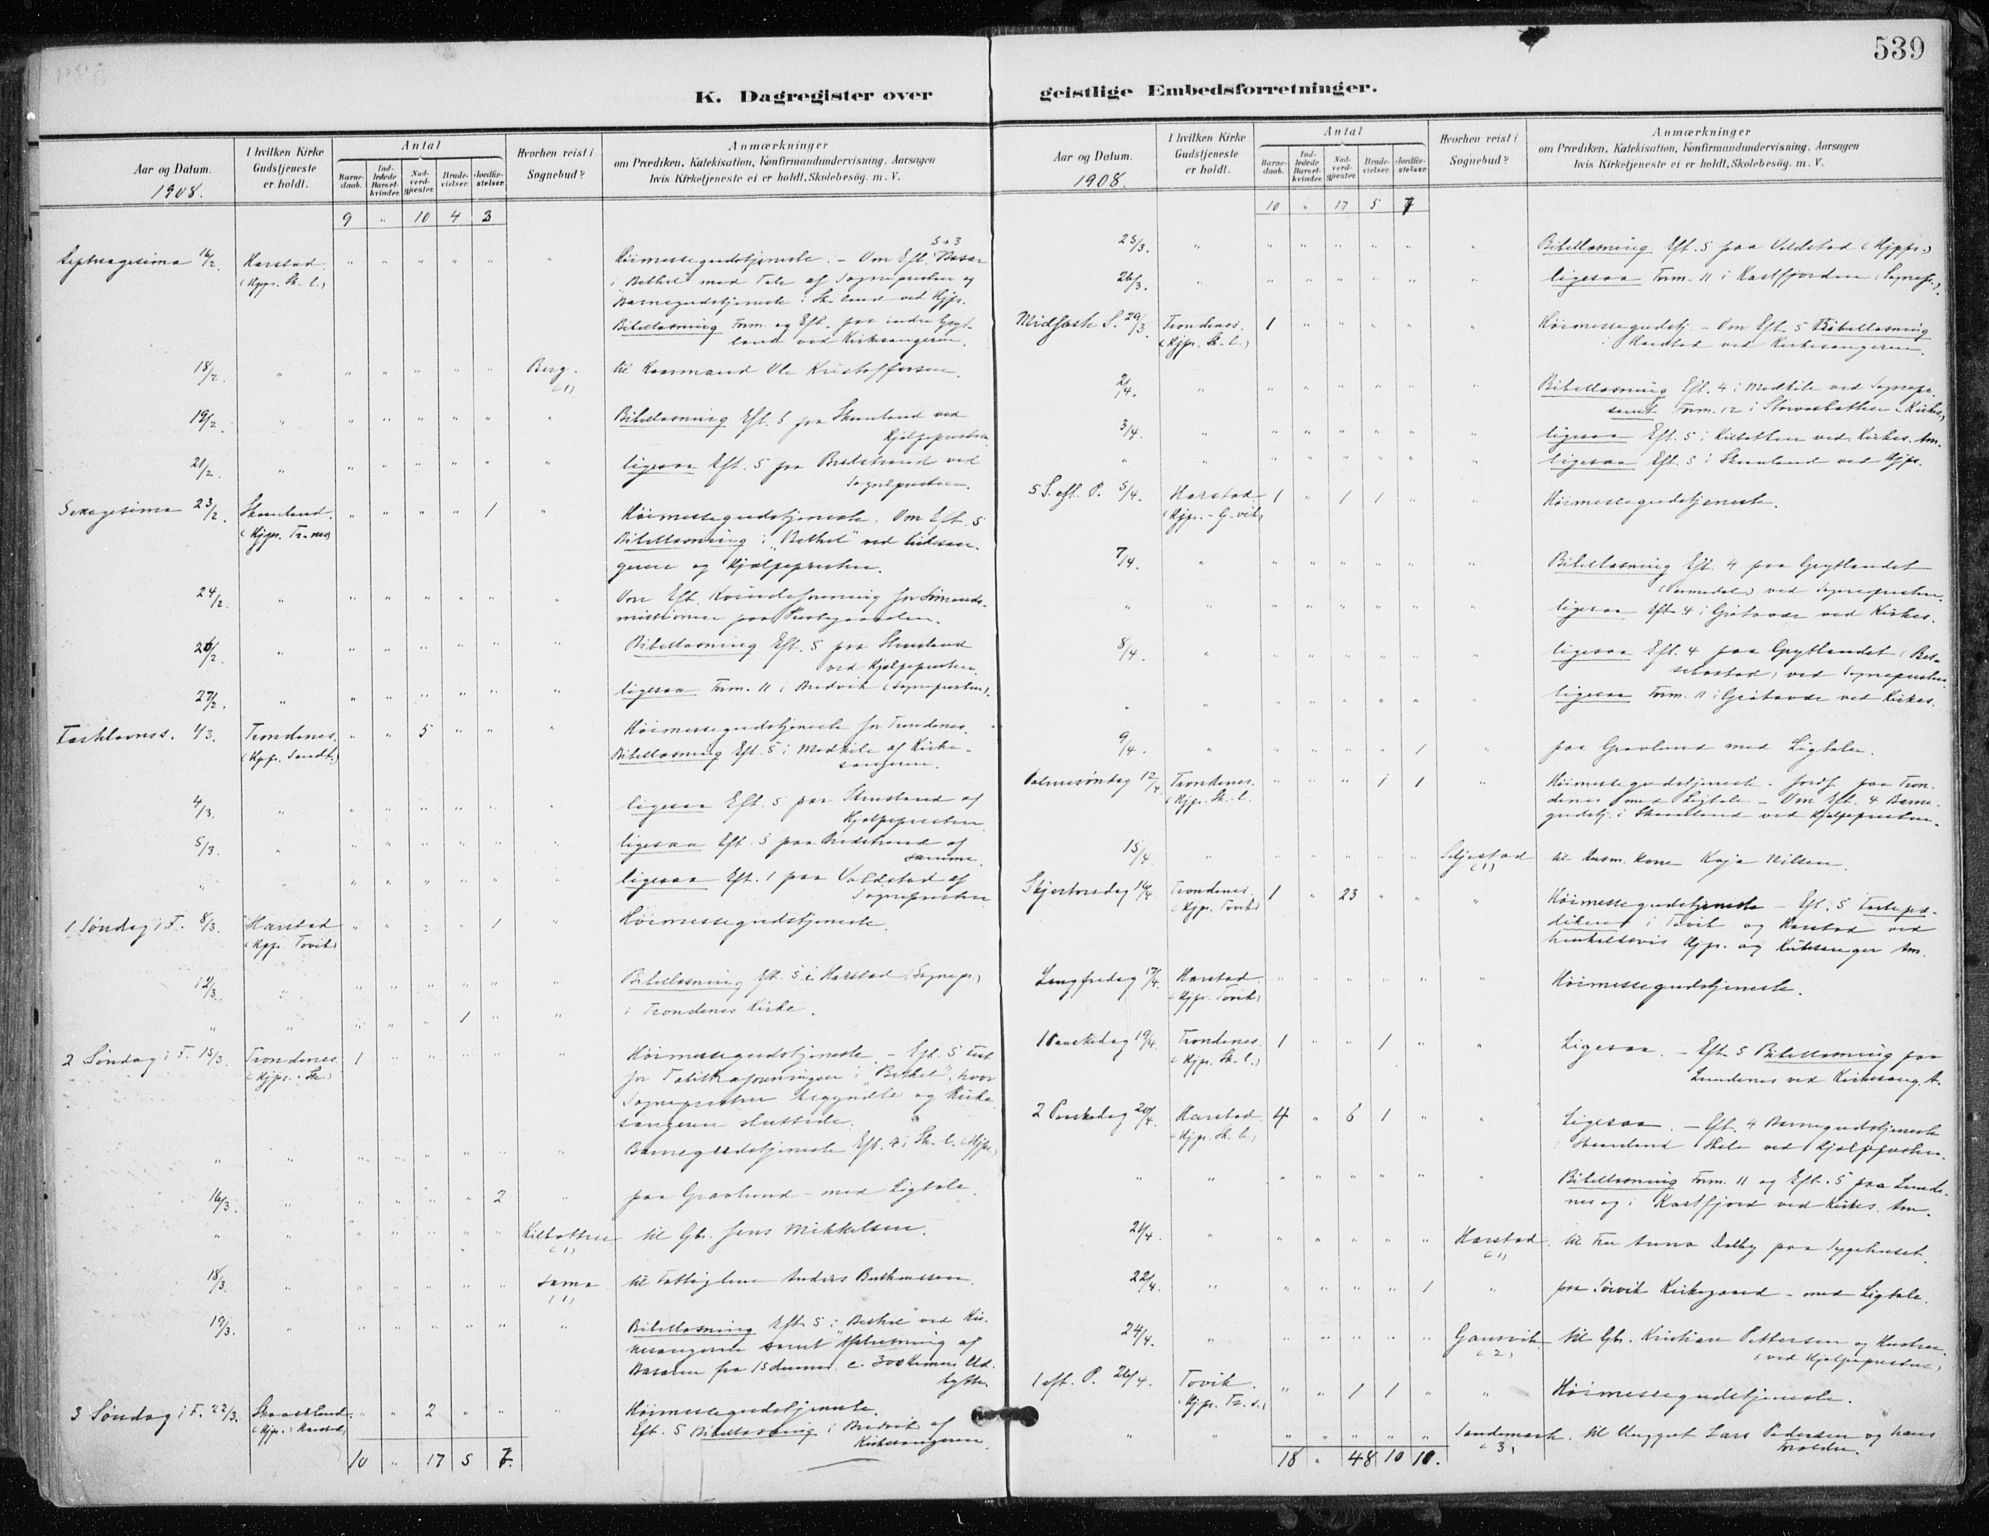 539
K. Dagregister over
geistlige Embedsforretninger.
Aar og Datum.
1908.
I hvilken Kirke
Gudstjeneste
er holdt.
Antal
Barne-
daab.
Ind-
ledede
Barsel-
kvinder.
Nad-
verd-
gjester.
Brude-
vielser.
Jordfæ-
stelser.
Hvorhen reist i
Sognebud?
Anmærkninger
om Prædiken, Katekisation, Konfirmandundervisning, Aarsagen
hvis Kirketjeneste ei er holdt, Skolebesøg. m. V.
9 " 10 4 3
Septuagesima 16/2. Harstad. " " " " " " Høimessegudstjeneste. – Om Eft. 5 Basar
(Hjpr. Sk. l.) i Bethel med Tale af Sognepresten og
Barnegudstjeneste i Sk.land ved Hjpr.
Bibellæsning Form. og Eft. paa indre Gryt-
land ved Kirkesangeren.
18/2. " " " " " " Berg. til Kaarmand Ole Kristoffersen.
(1)
19/2. " " " " " " " Bibellæsning Eft. 5 paa Skaanland ved
Hjælpepresten
21/2. " " " " " " " ligesaa Eft. 5 paa Bredstrand ved
Sognepresten.
Sexagesima 23/2. Skaanland. " " " " 1 " Høimessegudstjeneste. Om Eft. 5
(Hjpr. Tr.nes) Bibellæsning i "Bethel" ved Kirkesan-
geren og Hjælpepresten.
24/2. " " " " " " " Om Eft. Kvindeforening for Sømands-
missionen paa Prestegaarden.
26/2. " " " " " " " Bibellæsning Eft. 5 paa Skaanland
ved Hjælpepresten.
27/2. " " " " " " " ligesaa Form. 11 i Bredvik (Sognepresten).
Fastelavnss. 1/3. Trondenes. " " 5 " " Høimessegudstjeneste for Trondenes.
(Hjpr. Sandt.) Bibellæsning Eft. 5 i Medkile af Kirke-
sangeren.
4/3. " " " " " " " ligesaa Eft. 5 paa Skaanland af
Hjælpepresten.
5/3. " " " " " " " ligesaa Eft. 5 paa Bredstrand af
samme.
" " " " " " " ligesaa Eft. 1 paa Voldstad af
Sognepresten
1 Søndag i F. 8/3. Harstad " " " " 1 " Høimessegudstjeneste.
(Hjpr. Tovik)
12/3. " " " " " " " Bibellæsning Eft. 5 i Harstad (Sognepr.)
" " " " " 1 " " i Trondenes Kirke.
2 Søndag i F. 15/3. Trondenes. 1 " " " " " Høimessegudstjeneste – Eft. 5 Fest
(Hjpr. Sk.) for Totalforeningen i "Bethel", hvor
Sognepresten begyndte og Kirke-
sangeren sluttede.
" " " " " " " Barnegudstjeneste Eft. 4 i Sk. l. (Hjpr.)
16/3. " " " " " 2 " paa Gravlund – med Ligtale.
" " " " " " " Kilbotten til Gbr. Jens Mikkelsen.
(1)
18/3. " " " " " " samme til Fattiglem Anders Bertheussen.
(1)
19/3. " " " " " " " Bibellæsning Eft. 5 i "Bethel" ved Kir-
kesangeren samt Opløsning af
Basaren fra 15 dennes. c. 300 Kroners Ud-
bytte.
3 Søndag i F. 22/3. Skaanland. " " 2 " " " Høimessegudstjeneste.
(Hjpr. i Harstad) Eft. 5 Bibellæsning i Bredvik af
Kirkesangeren.
10 " 17 5 7.
Aar og Datum.
1908.
I hvilken Kirke
Gudstjeneste
er holdt.
Antal
Barne-
daab.
Ind-
ledede
Barsel-
kvinder.
Nad-
verd-
gjester.
Brude-
vielser.
Jordfæ-
stelser.
Hvorhen reist i
Sognebud?
Anmærkninger
om Prædiken, Katekisation, Konfirmandundervisning, Aarsagen
hvis Kirketjeneste ei er holdt, Skolebesøg. m. V.
10 " 17 5 7
25/3. " " " " " " " Bibellæsning Eft. 5 paa Voldstad (Hjpr.)
26/3. " " " " " " " ligesaa Form. 11 i Kastfjorden (Sognepr.).
Midfaste S. 29/3. Trondenes. 1 " " " " " Høimessegudstj. – Om Eft. 5 Bibellæsning
(Hjpr. Sk. l.) i Harstad ved Kirkesangeren.
2/4. " " " " " " " Bibellæsning Eft. 4 i Medkile ved Sognepr.
samt Form. 12 i Storvasbotten (Kirkes.)
3/4. " " " " " " " ligesaa Eft. 5 i Kilbotten ved Kirkes. Am.
" " " " " " " ligesaa Eft. 5 i Skaanland ved Hjpr.
5 S. eft. P. 5/4. Harstad. 1 " 1 1 " " Høimessegudstjeneste.
(Hjpr. – G.vik)
7/4. " " " " " " " Bibellæsning Eft. 4 paa Grytlandet
ved Sognepresten.
" " " " " " " ligesaa Eft. 4 i Grøtavær ved Kirkes.
8/4. " " " " " " " ligesaa Eft. 4 paa Grytlandet (Bes-
sebostad) ved Sognepresten.
" " " " " " " ligesaa Form. 11 i Grøtavær ved Kirkes.
9/4. " " " " " 1 " paa Gravlund med Ligtale.
Palmesøndag 12/4. Trondenes. " " " 1 1 " Høimessegudstjeneste. Jordf. paa Tron-
(Hjpr. Sk. l.) denes med Ligtale – Om Eft. 4 Barne-
gudstj. i Skaanland ved Hjælpepresten.
15/4. " " " " " " Seljestad til Husm. Kone Kaja Nilsen.
(1)
Skjertorsdag 16/4. Trondenes. 1 " 23 " " " Høimessegudstjeneste – Eft. 5 Fastepræ-
(Hjpr. Tovik) diken i Tovik og Harstad ved
henholdsvis Hjpr. og Kirkesanger Am.
Langfredag 17/4. Harstad. " " " " " " Høimessegudstjeneste.
(Hjpr. Tovik)
1 Paaskedag 19/4. Trondenes. 1 " " 1 " " Ligesaa. – Eft. 5 Bibellæsning paa
(Hjpr. Sk. l.) Lundenes ved Kirkesang. A.
2 Paaskedag 20/4. Harstad. 4 " 6 1 " " Ligesaa. – Eft. 4 Barnegudstjeneste
(Hjpr. Sk. l.) i Skaanland Skole ved Hjælpepresten.
" " " " " " " Bibellæsning Form. 11 og Eft. 5 paa Lunde-
nes og i Kastfjord ved Kirkes. Am.
21/4. " " " " " " Harstad. til Fru Anna Dolby paa Sygehuset.
(1)
22/4. " " " " " 1 " paa Sørvik Kirkegaard – med Ligtale.
24/4. " " " " " " Gausvik til Gbr. Kristian Pettersen og Hustru.
(2) (ved Hjælpepresten)
1 eft. P. 26/4. Tovik. " " 1 1 " " Høimessegudstjeneste.
(Hjpr. Tr.s.)
" " " " " " " Sandemark. til Ungget Lars Pedersen og hans
(3) Forældre.
18 " 48 10 10.